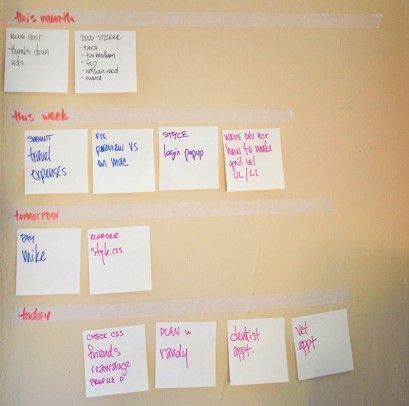 this month
BLOG POST
thumbs down
ads
SEND STICKER
- tara
- flip
this week
SUBMIT
travel
expenses
FIX
preview vs
STYLE
login popup
WRITE DEV POST
how to make
grid w/
UL/LI
tomorrow
PAY
mike
REORDER
style.css
today
CHECK CSS
friends
rearrange
PROFILE P
PLAN w
randy
dentist
appt.
vet
appt